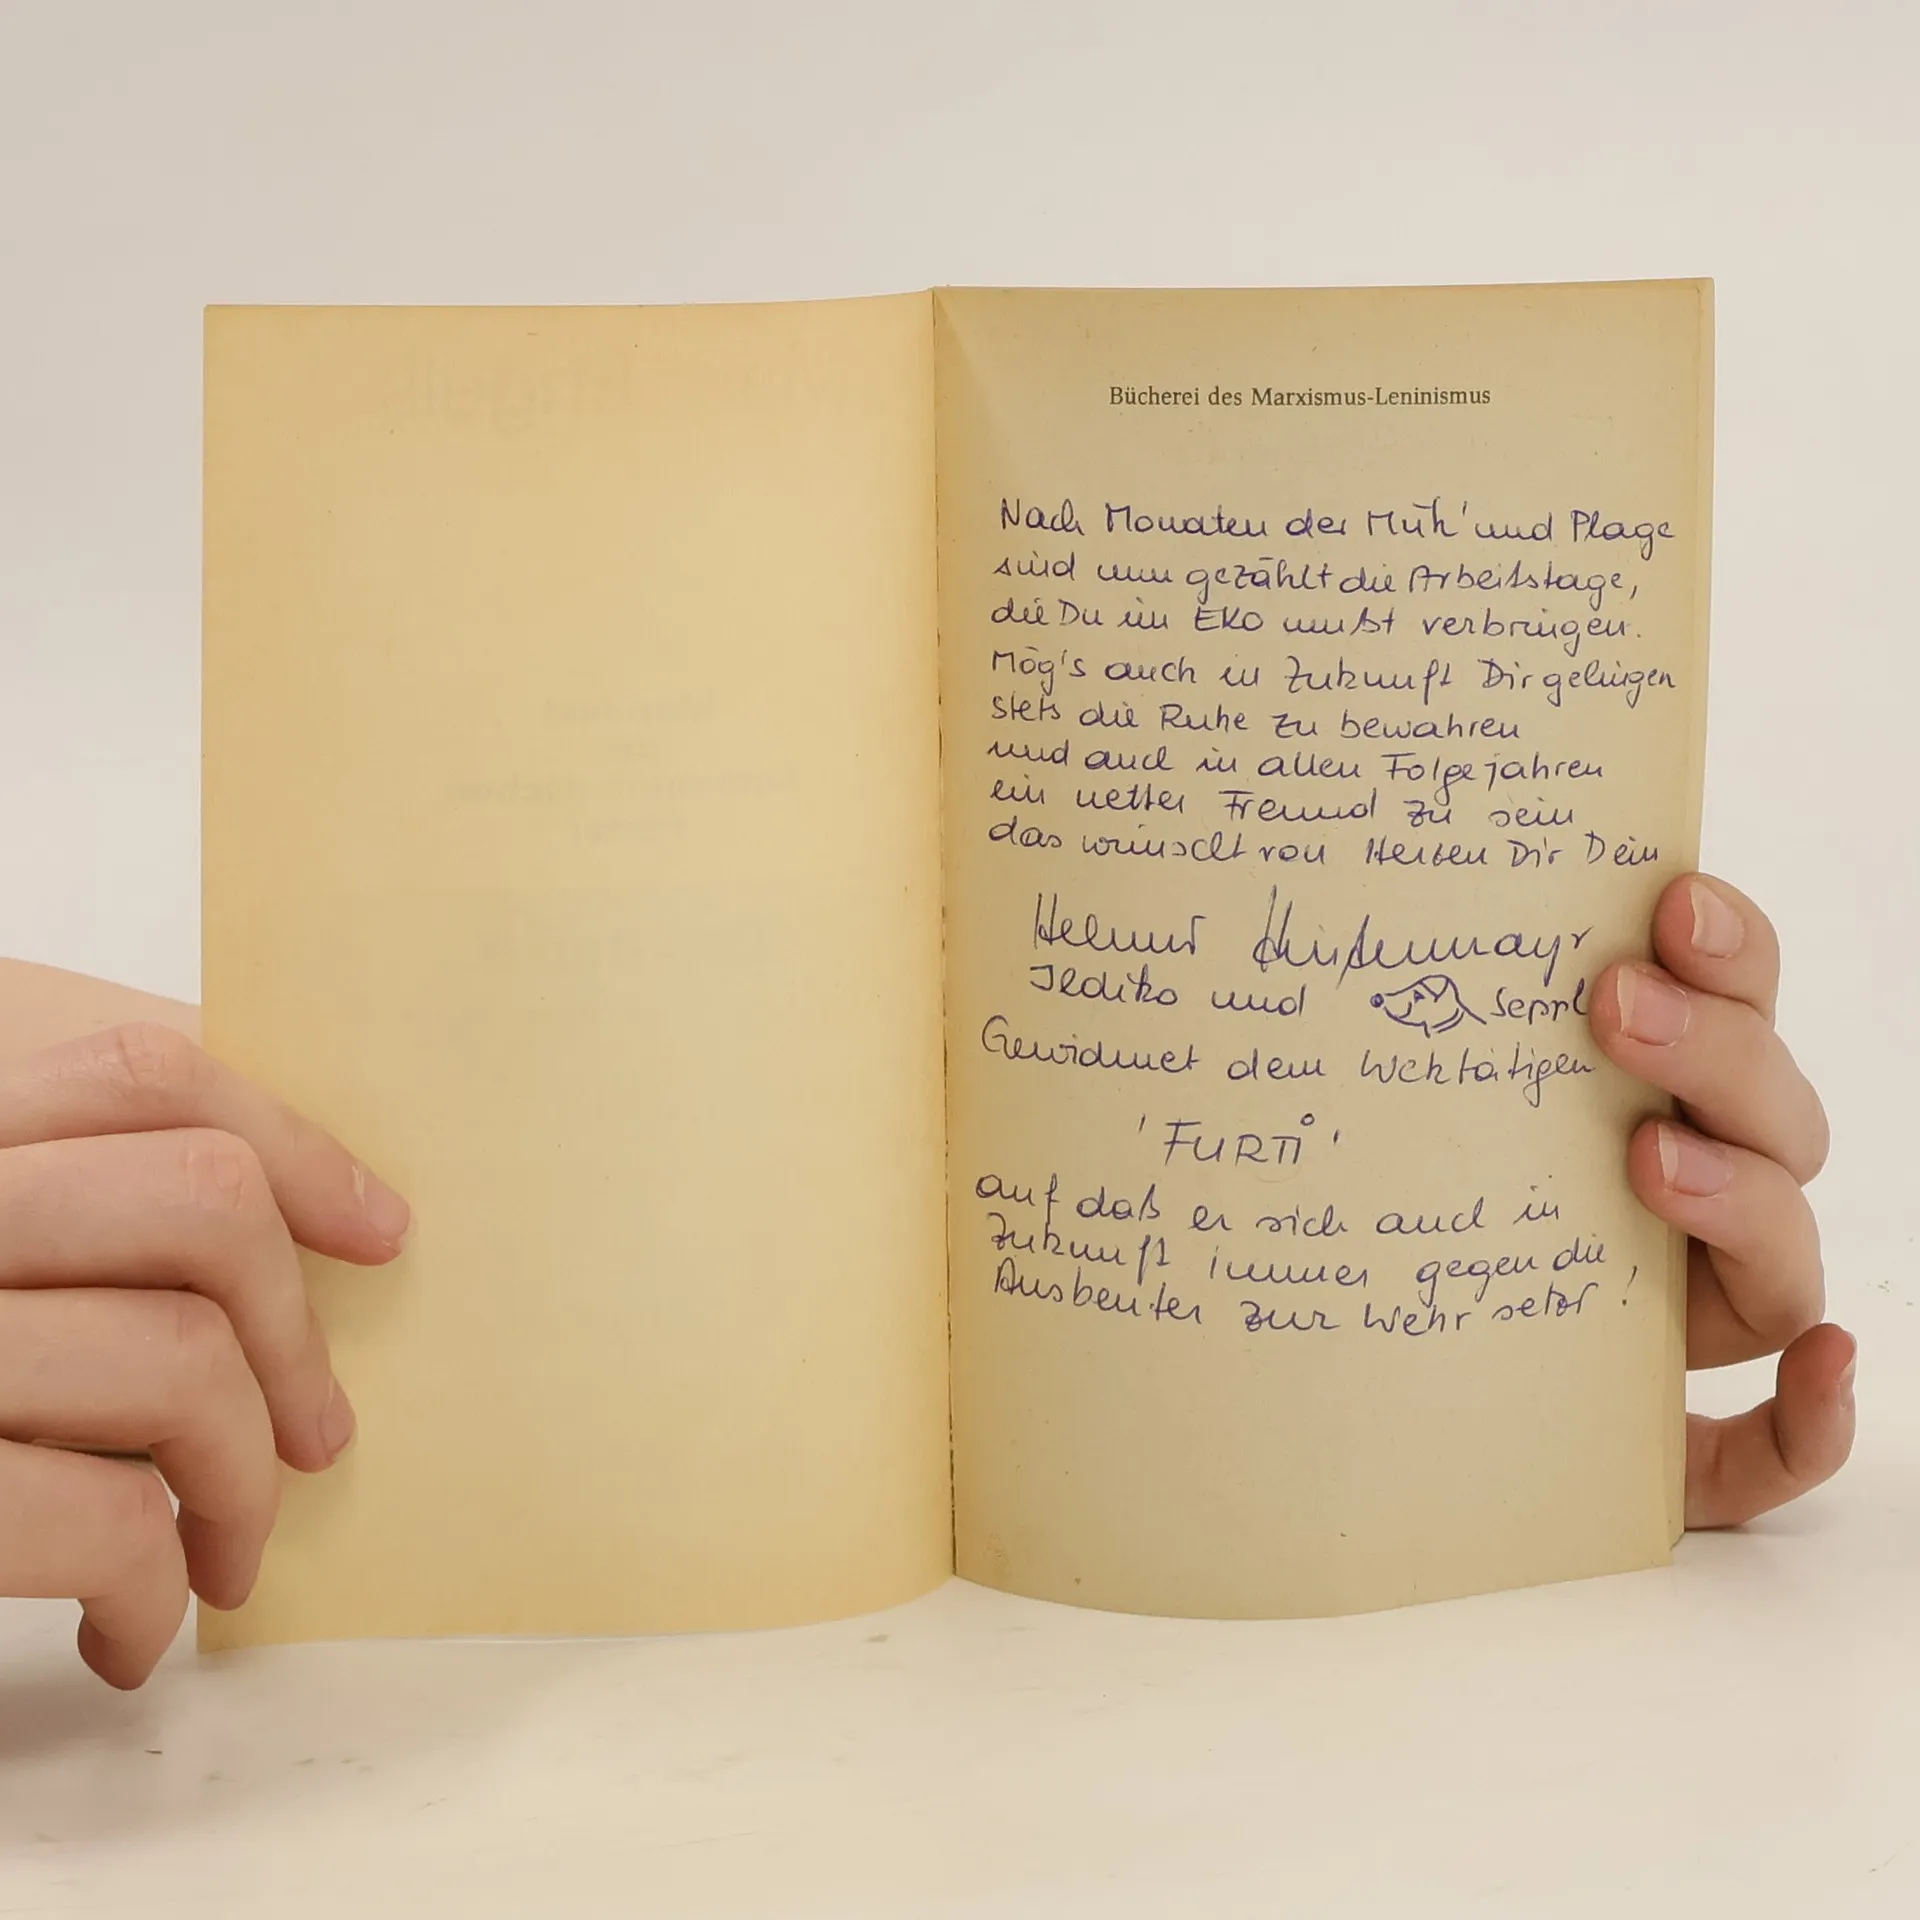 Bücherei des Marxismus-Leninismus
Nach Monaten der Müh' und Plage
sind nun gezählt die Arbeitstage,
die Du im EKO mußt verbringen.
Mög's auch in Zukunft Dir gelingen
stets die Ruhe zu bewahren
und auch in allen Folgejahren
ein netter Freund zu sein
das wünscht von Herzen Dir Dein
Helmut
Ildiko und Seppl
Gewidmet dem Wektätigen
'FURTI'
auf daß er sich auch in
Zukunft immer gegen die
Ausbeuter zur Wehr setzt!